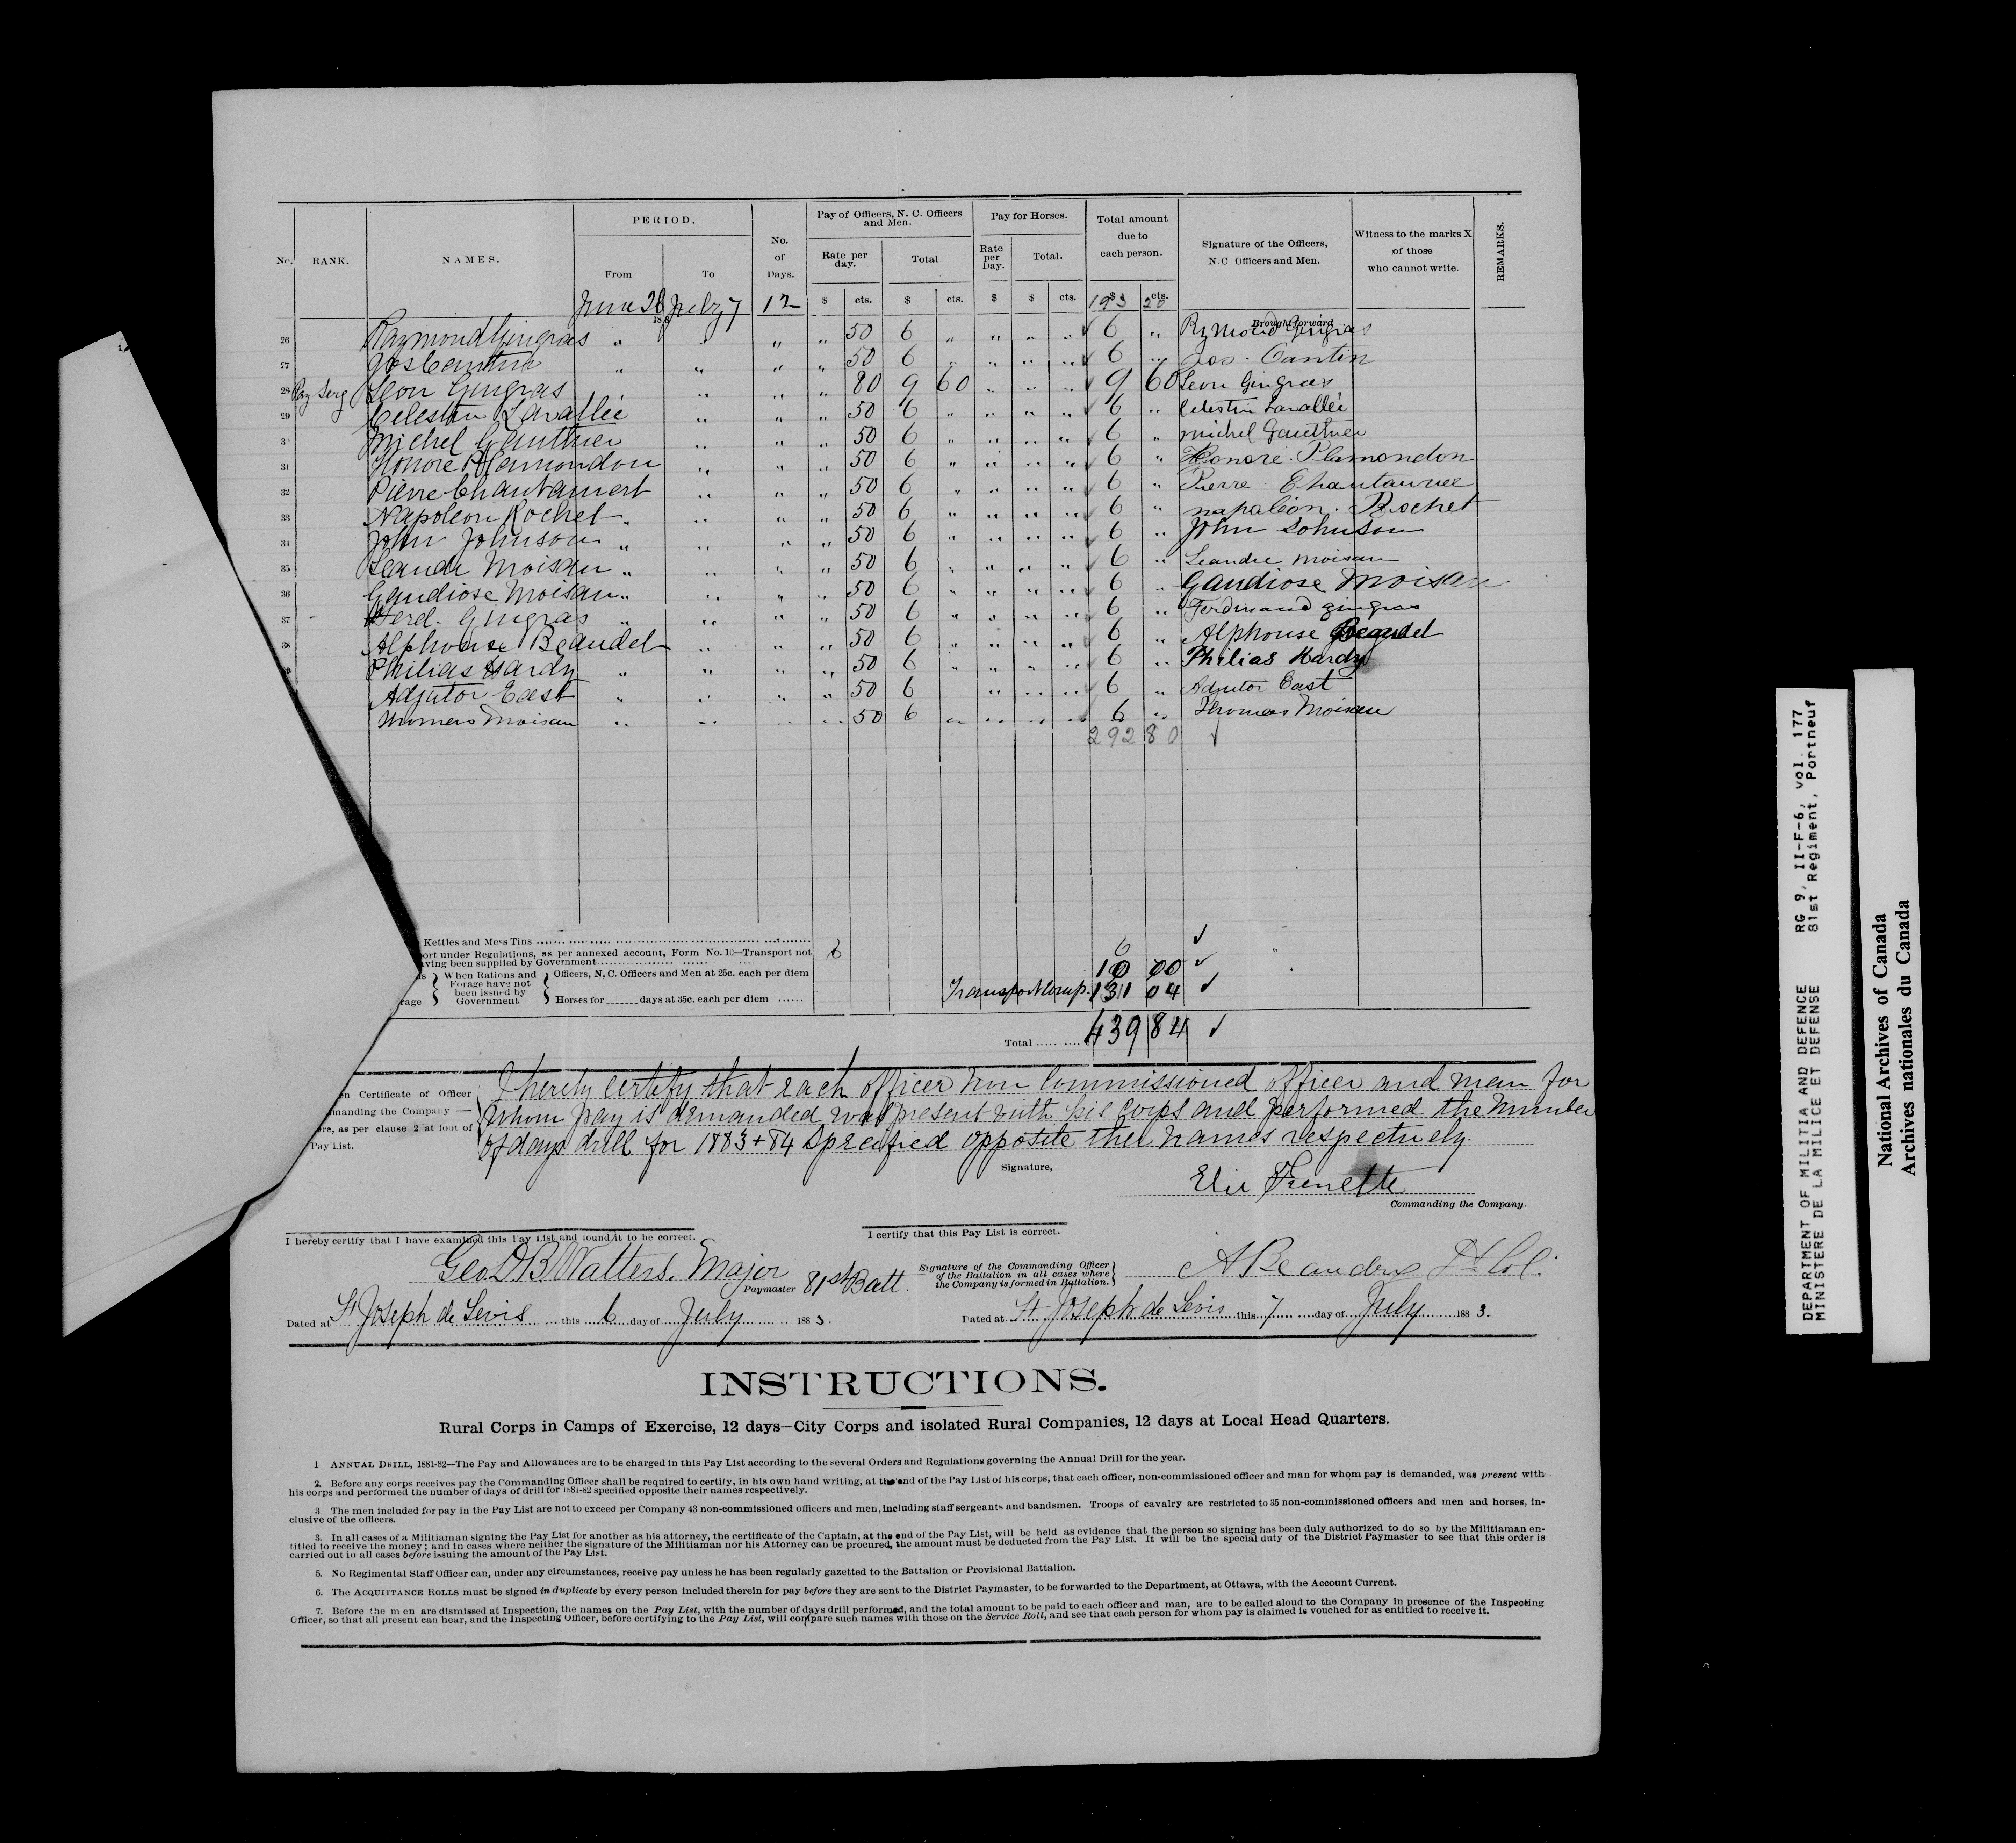 No. RANK. NAMES. PERIOD. No. of Days. Pay of Officers, N. C. Officers and Men. Pay for Horses. Total amount due to each person. Signature of the Officers, N.C Officers and Men. Witness to the marks X of those who cannot write. REMARKS.
From To Rate per day. Total Rate per Day. Total.
June 26 188 July 7 12 $ cts. $ cts. $ $ cts. $ cts. 193 20
Brought forward
26 Raymond Gingras " " " " 50 6 " " " " 6 " Rymond Gingras
27 Jos Cantin " " " " 50 6 " " " " 6 " Jos. Cantin
28 Pay Serg Leon Gingras " " " 80 9 60 " " " 9 60 Leon Gingras
29 Celestin Lavallée " " " 50 6 " " " " 6 " Celestin Lavallée
30 Michel Gauthier " " " 50 6 " " " " 6 " michel Gauthier
31 Honore Plamondon " " " 50 6 " " " " 6 " Honoré. Plamondon
32 Pierre " " " 50 6 " " " " 6 " Pierre
33 Napoleon Rochet " " " " 50 6 " " " " 6 " napoléon. Rochet
34 John Johnson " " " " 50 6 " " " " 6 " John Johnson
35 Leandr Moisan " " " " 50 6 " " " " 6 " Leandre moisan
36 Gaudiose Moisan " " " " 50 6 " " " " 6 " Gaudiose Moisan
37 Ferd. Gingras " " " " 50 6 " " " " 6 " Ferdinand gingras
38 Alphonse Beaudet " " " 50 6 " " " " 6 " Alphonse Beaudet
Philias Hardy " " " " 50 6 " " " " 6 " Philias Hardy
Adjutor East " " " " 50 6 " " " 6 " Adjutor East
Thomas Moisan " " " " 50 6 " " " " 6 " Thomas Moisan
292 80
Kettles and Mess Tins 6 6
ort under Regulations, as per annexed account, Form No. 10—Transport not
aving been supplied by Government 10 00
When Rations and Forage have not been issued by Government
Officers, N. C. Officers and Men at 25c. each per diem
rage Horses for days at 35c. each per diem Transport comp. 131 04
Total 439 84
n Certificate of Officer
manding the Company —
re, as per clause 2 at foot of
Pay List.
I hereby certify that each officer non Commissioned officer and man for
whom pay is demanded was present with his corps and performed the number
of days drill for 1883 + 84 specified opposite their names respectively.
Signature,
Elie Frenette
Commanding the Company.
I hereby certify that I have examined this Pay List and found it to be correct.
Geo D B Watters. Major
Paymaster 81st Batt.
Dated at St Joseph de Levis this 6 day of July 1883.
I certify that this Pay List is correct.
Signature of the Commanding Officer
of the Battalion in all cases where
the Company is formed in Battalion.
A Beaudry Lt Col.
Dated at St Joseph de Levis this 7 day of July 1883.
INSTRUCTIONS.
Rural Corps in Camps of Exercise, 12 days—City Corps and isolated Rural Companies, 12 days at Local Head Quarters.
1 ANNUAL DRILL, 1881-82—The Pay and Allowances are to be charged in this Pay List according to the several Orders and Regulations governing the Annual Drill for the year.
2. Before any corps receives pay the Commanding Officer shall be required to certify, in his own hand writing, at the end of the Pay List of his corps, that each officer, non-commissioned officer and man for whom pay is demanded, was present with
his corps and performed the number of days of drill for 1881-82 specified opposite their names respectively.
3 The men included for pay in the Pay List are not to exceed per Company 43 non-commissioned officers and men, including staff sergeants and bandsmen. Troops of cavalry are restricted to 35 non-commissioned officers and men and horses, in-
clusive of the officers.
3. In all cases of a Militiaman signing the Pay List for another as his attorney, the certificate of the Captain, at the end of the Pay List, will be held as evidence that the person so signing has been duly authorized to do so by the Militiaman en-
titled to receive the money; and in cases where neither the signature of the Militiaman nor his Attorney can be procured, the amount must be deducted from the Pay List. It will be the special duty of the District Paymaster to see that this order is
carried out in all cases before issuing the amount of the Pay List.
5. No Regimental Staff Officer can, under any circumstances, receive pay unless he has been regularly gazetted to the Battalion or Provisional Battalion.
6. The ACQUITTANCE ROLLS must be signed in duplicate by every person included therein for pay before they are sent to the District Paymaster, to be forwarded to the Department, at Ottawa, with the Account Current.
7. Before the men are dismissed at Inspection, the names on the Pay List, with the number of days drill performed, and the total amount to be paid to each officer and man, are to be called aloud to the Company in presence of the Inspecting
Officer, so that all present can hear, and the Inspecting Officer, before certifying to the Pay List, will compare such names with those on the Service Roll, and see that each person for whom pay is claimed is vouched for as entitled to receive it.
DEPARTMENT OF MILITIA AND DEFENCE RG 9, II-F-6, vol. 177
MINISTERE DE LA MILICE ET DEFENSE 81st Regiment, Portneuf
National Archives of Canada
Archives nationales du Canada